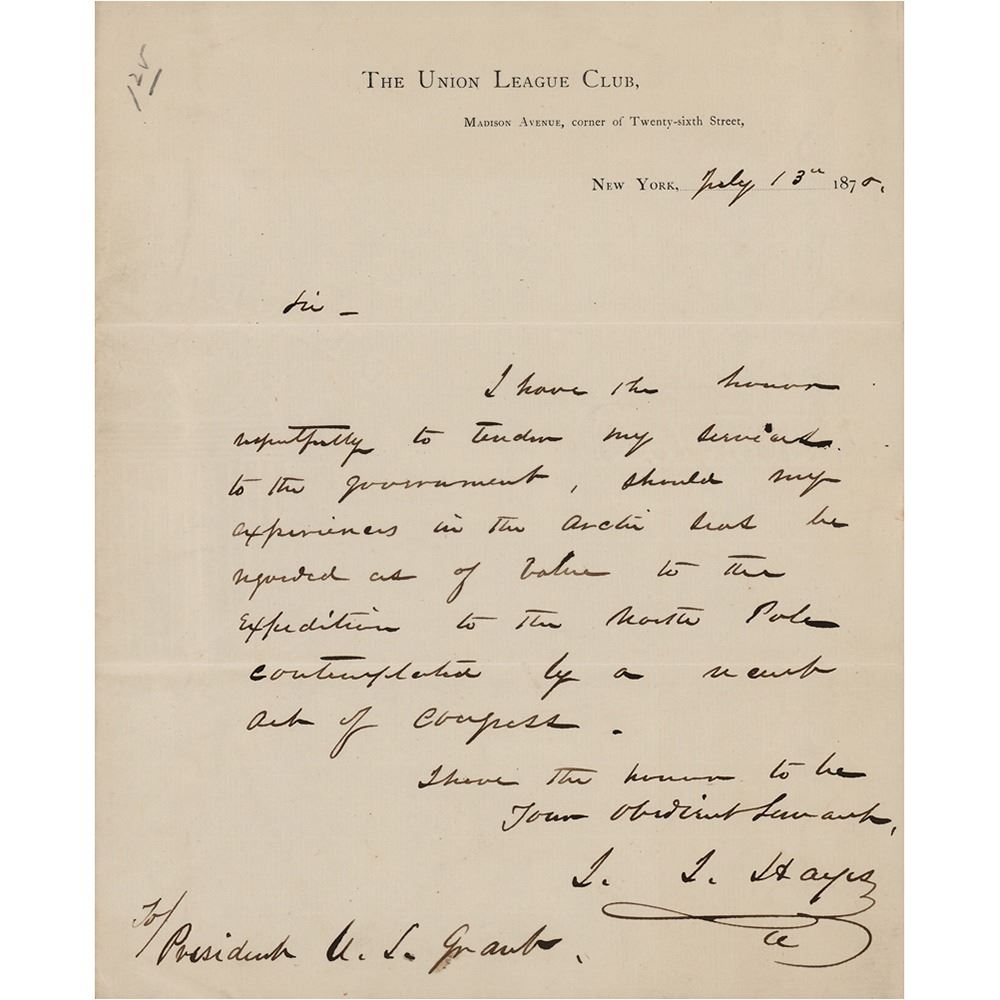 125
THE UNION LEAGUE CLUB,
MADISON AVENUE, corner of Twenty-sixth Street,
NEW YORK, July 13th 1870.
Sir –
I have the honor
respectfully to tender my services
to the government, should my
experiences in the Arctic Seas be
regarded as of value to the
Expedition to the North Pole
contemplated by a recent
act of Congress.
I have the honor to be
Your Obedient Servant,
I. I. Hayes
To/
President U. S. Grant.